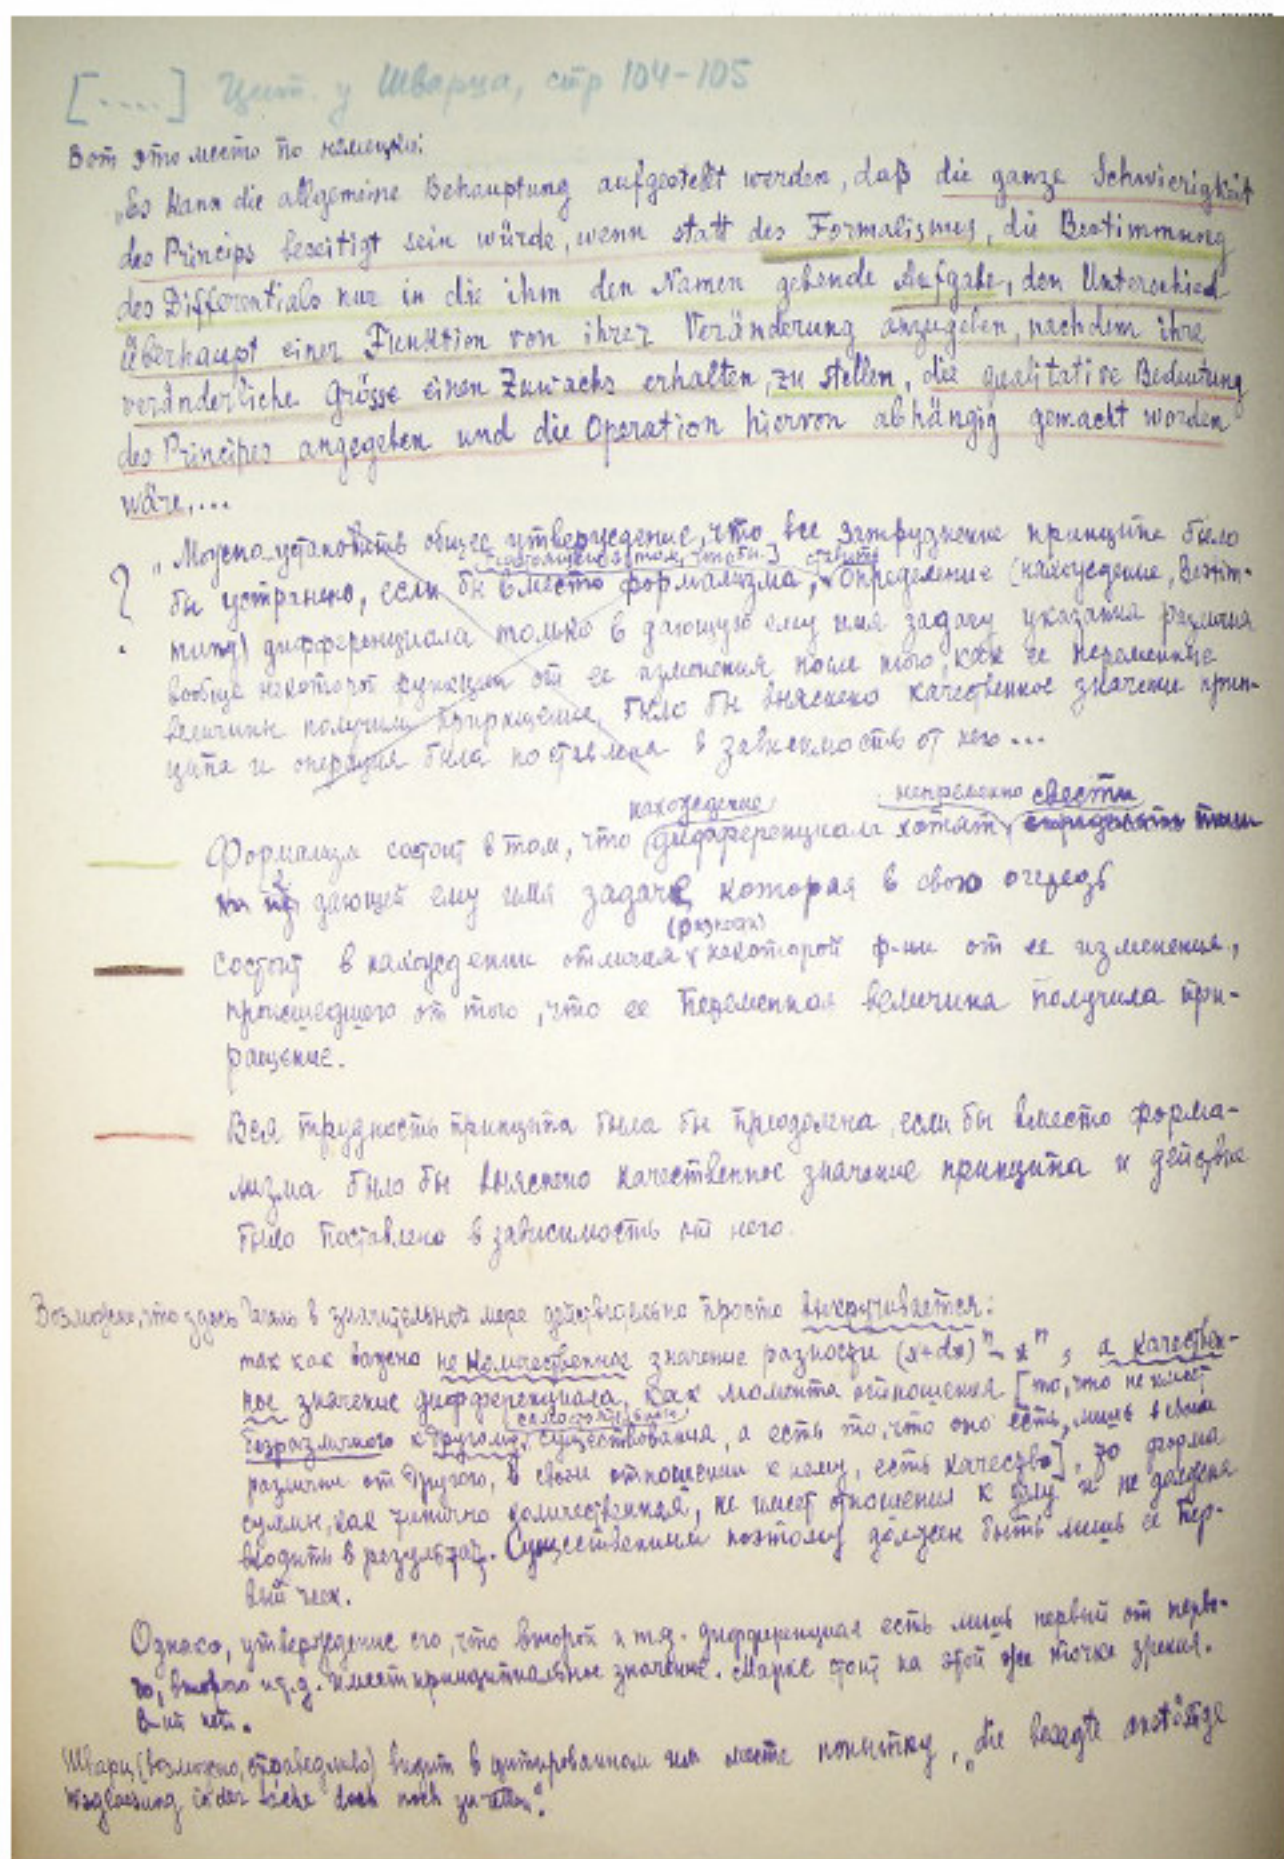 [....] Цит. у Шварца, стр 104-105
Вот это место по немецки:
„Es kann die allgemeine Behauptung aufgestellt werden, daß die ganze Schwierigkeit
des Princips beseitigt sein würde, wenn statt des Formalismus, die Bestimmung
des Differentials nur in die ihm den Namen gebende Aufgabe, den Unterschied
überhaupt einer Funktion von ihrer Veränderung anzugeben, nachdem ihre
veränderliche Grösse einen Zuwachs erhalten, zu stellen, die qualitative Bedeutung
des Principes angegeben und die Operation hiervon abhängig gemacht worden
wäre,...
„Можно установить общее утверждение, что все затруднение принципа было
[состоящего в том, что бы] ставить
? бы устранено, если бы вместо формализма, определение (нахождение, Bestim-
mung) дифференциала только в дающую ему имя задачу указания различия
вообще некоторой функции от ее изменения после того, как ее переменные
величины получили приращение, было бы выяснено качественное значение прин-
ципа и операция была поставлена в зависимость от него...
нахождение непременно свести
Формализм состоит в том, что дифференциала хотят
к дающей ему имя задаче, которая в свою очередь
(разности)
состоит в нахождении отличия некоторой ф-ии от ее изменения,
происшедшего от того, что ее переменная величина получила при-
ращение.
Вся трудность принципа была бы преодолена, если бы вместо форма-
лизма было бы выяснено качественное значение принципа и действие
было поставлено в зависимость от него.
Возможно, что здесь Гегель в значительной мере действительно просто выкручивается:
так как важно не количественное значение разности (x+dx)ⁿ - xⁿ, а качествен-
ное значение дифференциала, как момента отношения [то, что не имеет
(самостоятельного)
безразличного к другому, существования, а есть то, что оно есть, лишь в своем
различии от другого, в своем отношении к нему, есть качество], то форма
суммы, как типично количественная, не имеет отношения к делу и не должна
входить в результат. Существенным поэтому должен быть лишь ее пер-
вый член.
Однако, утверждение его, что второй и т.д. дифференциал есть лишь первый от перво-
го, второго и т.д. имеет принципиальное значение. Маркс стоит на этой же точке зрения.
Шварц (возможно, справедливо) видит в цитированном им месте попытку, „die besagte anstößige
Weglassung in der Sache doch noch zu retten".